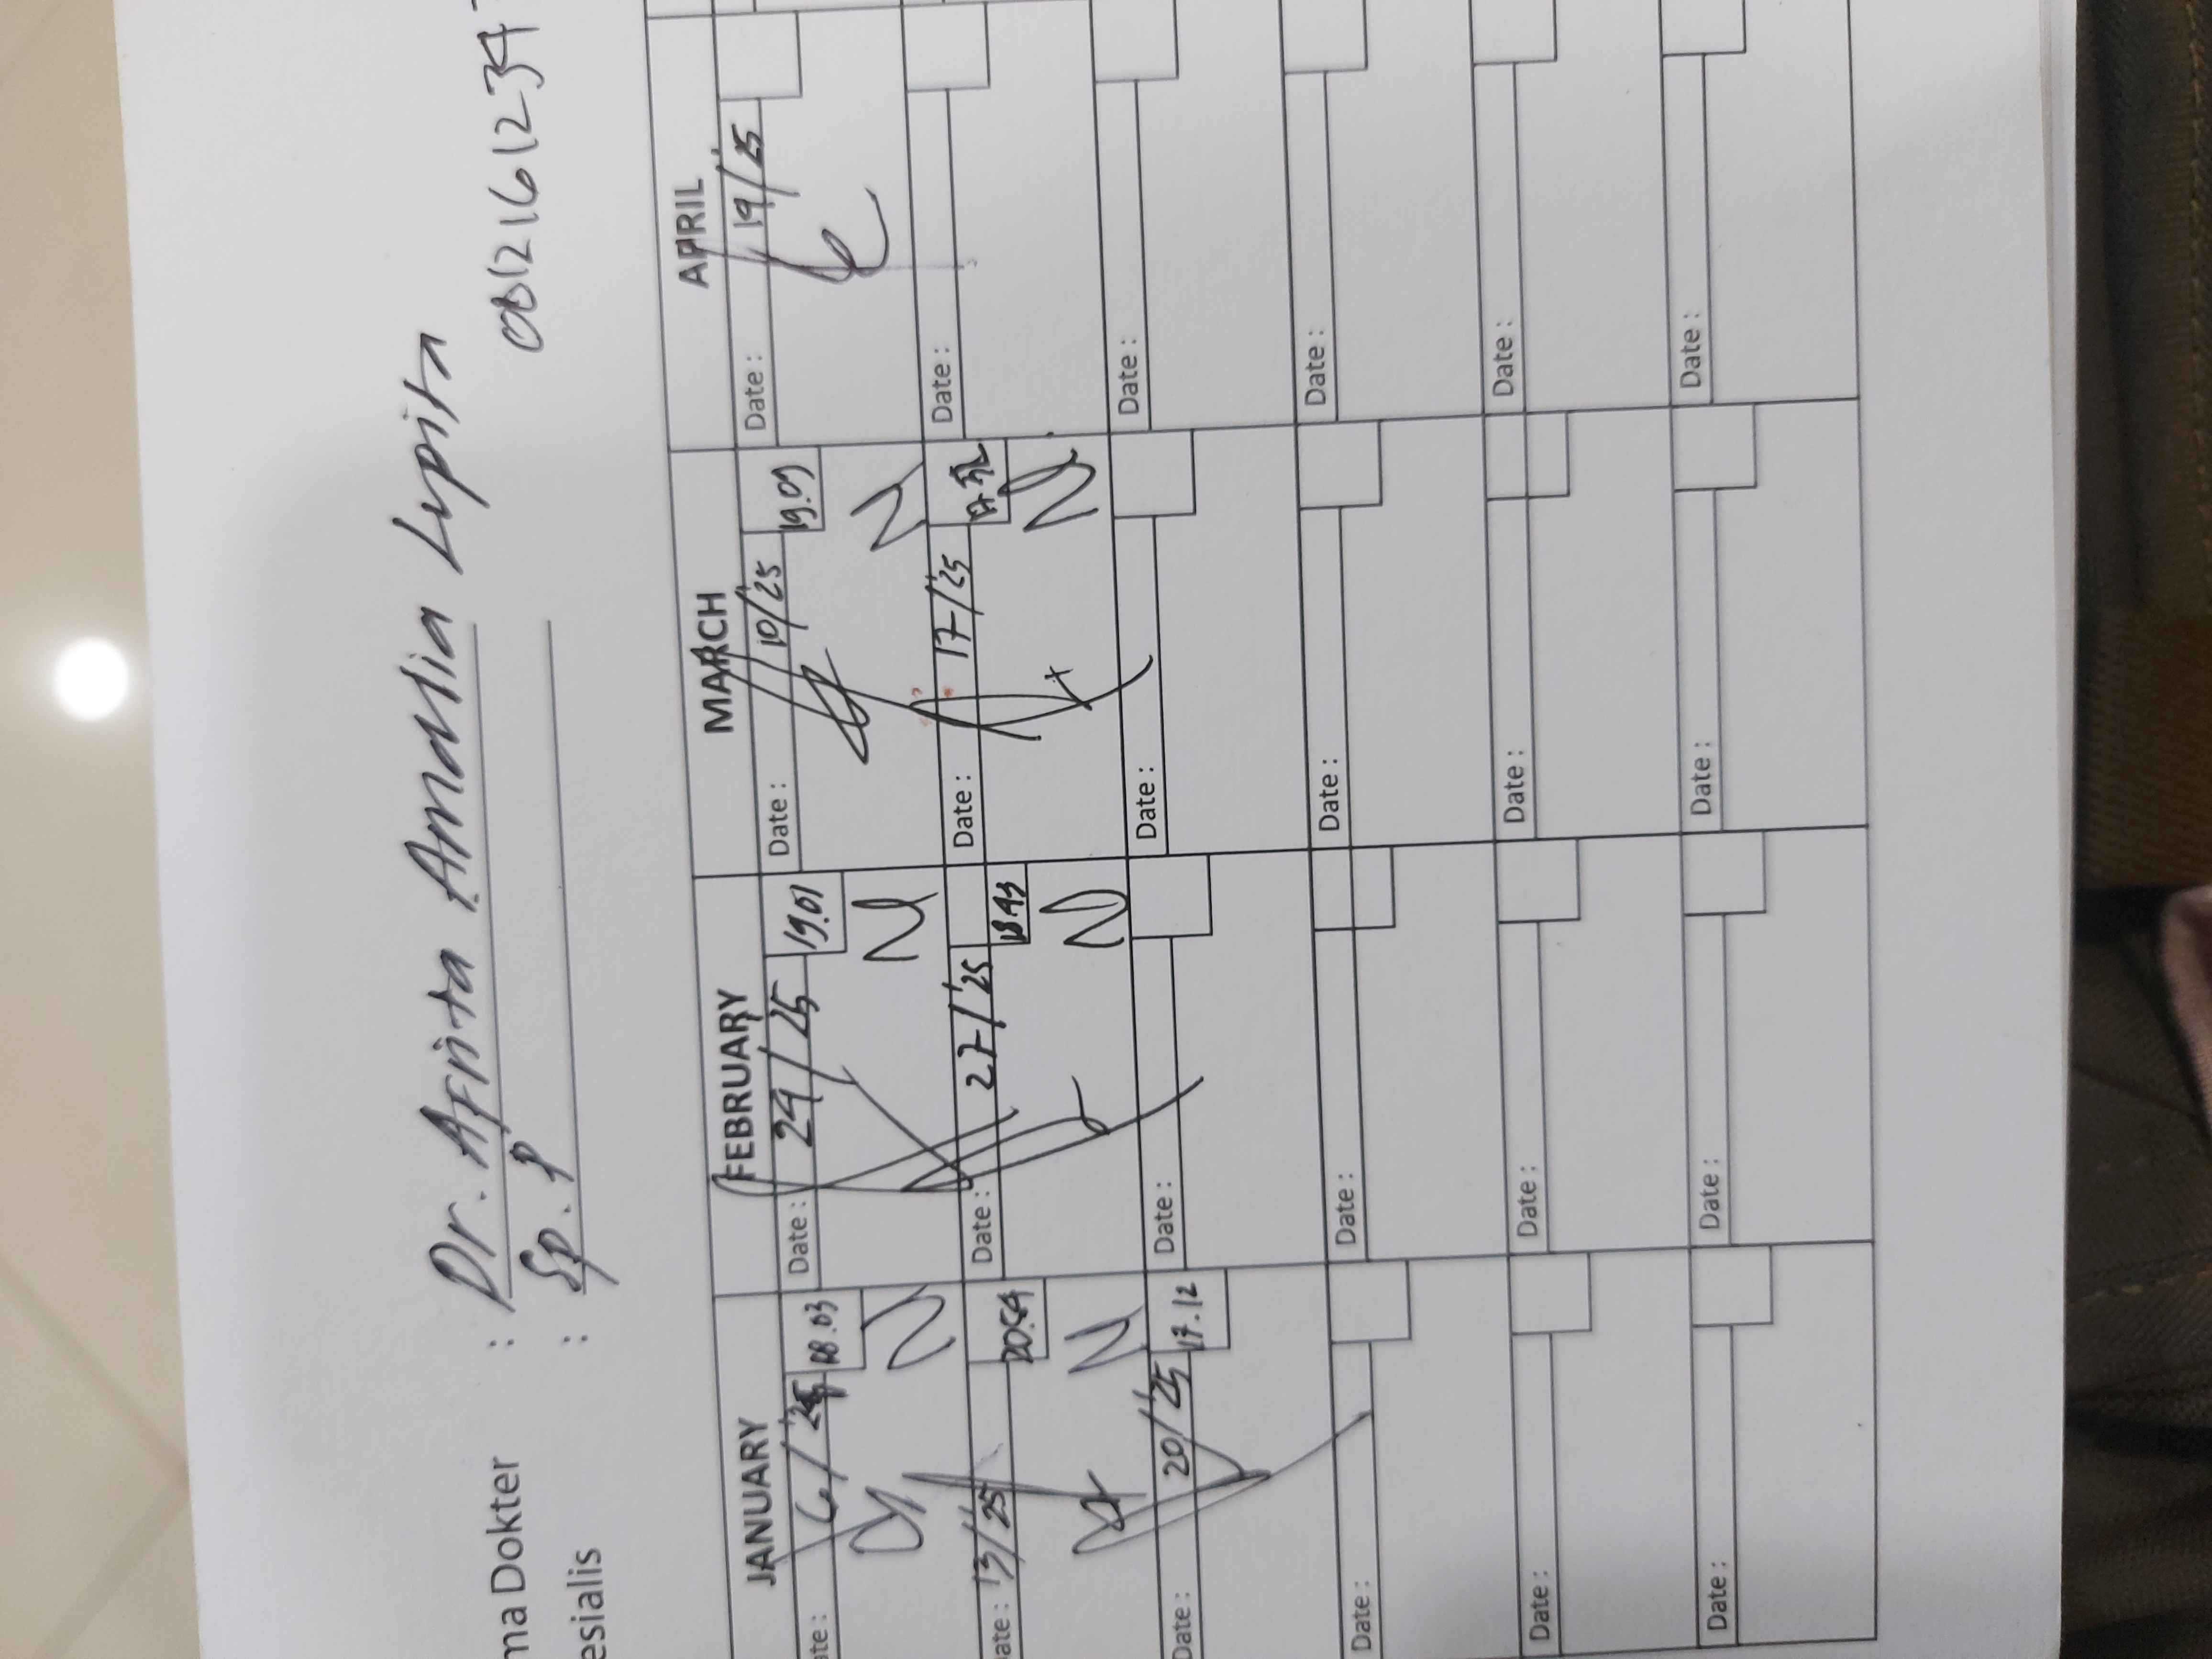 ma Dokter : Dr. Afrita Amalia Lupita
esialis : Sp. P
0812161234
JANUARY FEBRUARY MARCH APRIL
ate : 6/'25 18.03 Date : 24/25 19.01 Date : 10/'25 19.09 Date : 19/'25
N N N
ate : 13/'25 20.54 Date : 27/'25 18.43 Date : 17/'25 Date :
N N N
Date : 20/'25 17.12 Date : Date : Date :
Date : Date : Date : Date :
Date : Date : Date : Date :
Date : Date : Date : Date :